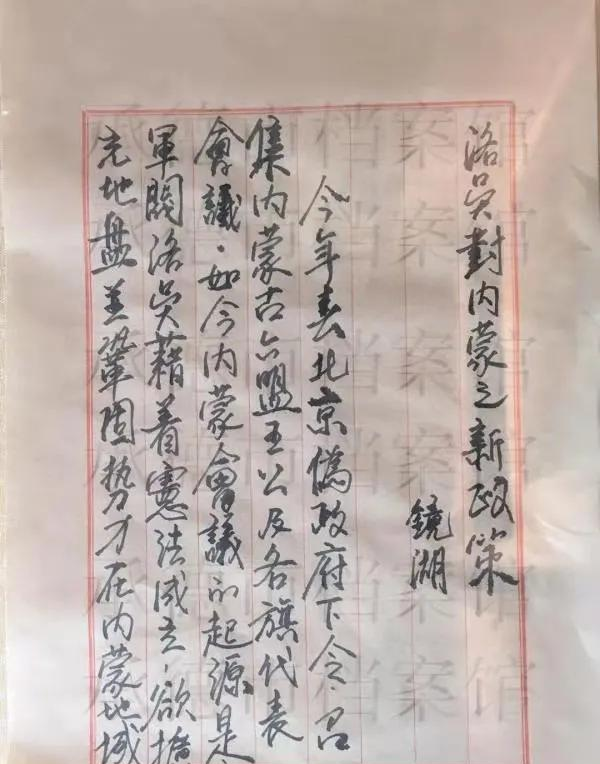 洛吳對内蒙之新政策
鏡湖
今年春北京僞政府下令·召
集内蒙古六盟王公及各旗代表
會議·如今内蒙會議的起源是
軍閥洛吳藉着憲法成立·欲擴
充地盤並鞏固勢力在内蒙地域